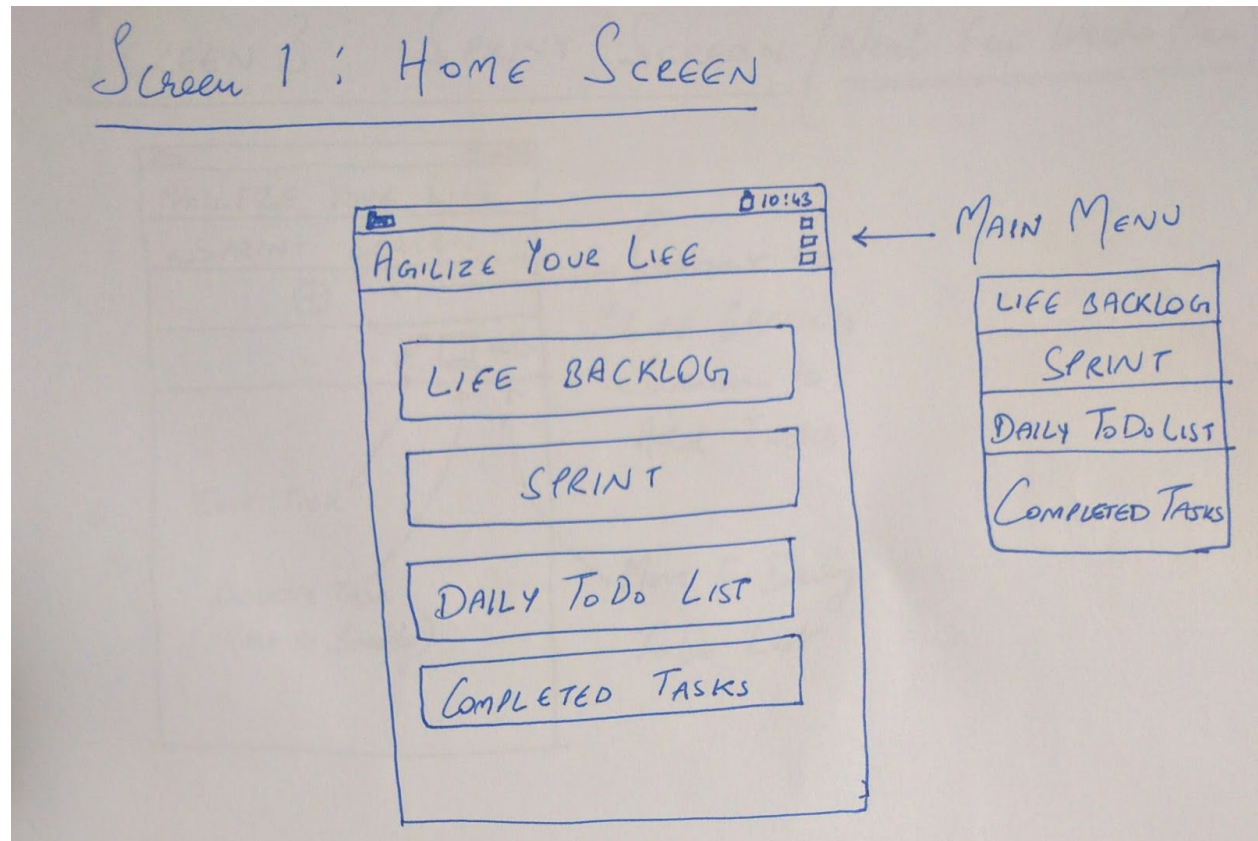 Screen 1 : HOME SCREEN
10:43
AGILIZE YOUR LIFE
LIFE BACKLOG
SPRINT
DAILY ToDo LIST
COMPLETED TASKS
MAIN MENU
LIFE BACKLOG
SPRINT
DAILY ToDo LIST
COMPLETED TASKS